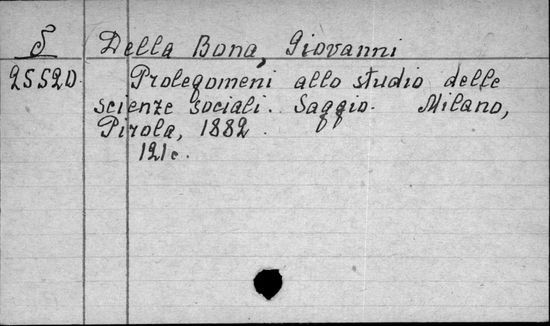 S Della Bona, Giovanni
25520. Prolegomeni allo studio delle
scienze sociali. Saggio. Milano,
Pirola, 1882.
121 c.